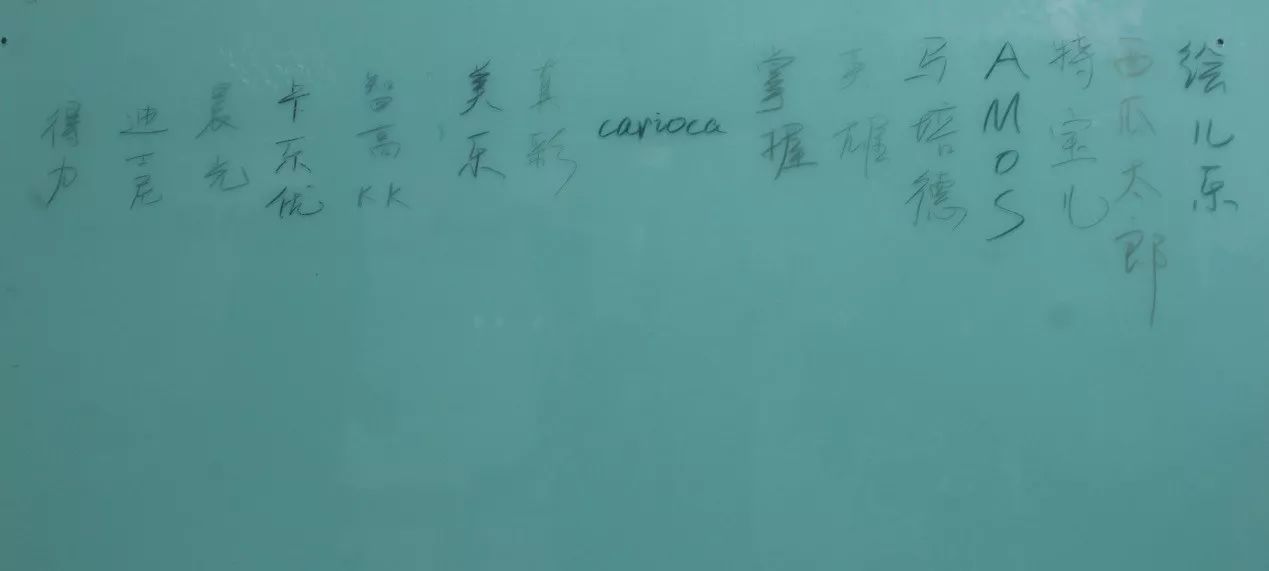 得力
迪士尼
晨光
卡乐优
智高KK
美乐
真彩
carioca
掌握
英雄
马培德
AMOS
特宝儿
西瓜太郎
绘儿乐